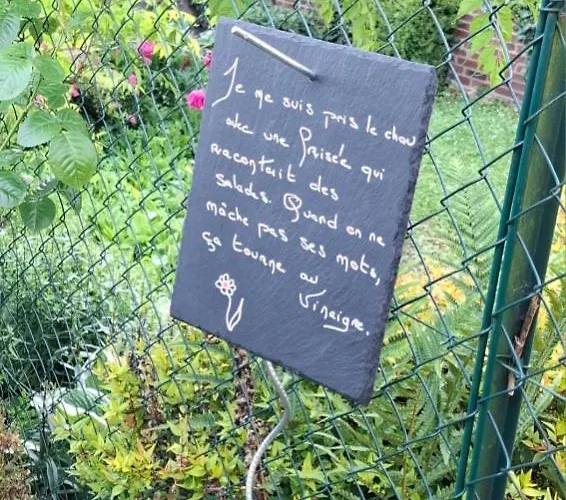 Je me suis pris le chou
avec une Frisée qui
racontait des
salades. Quand on ne
mâche pas ses mots,
ça tourne au
Vinaigre.